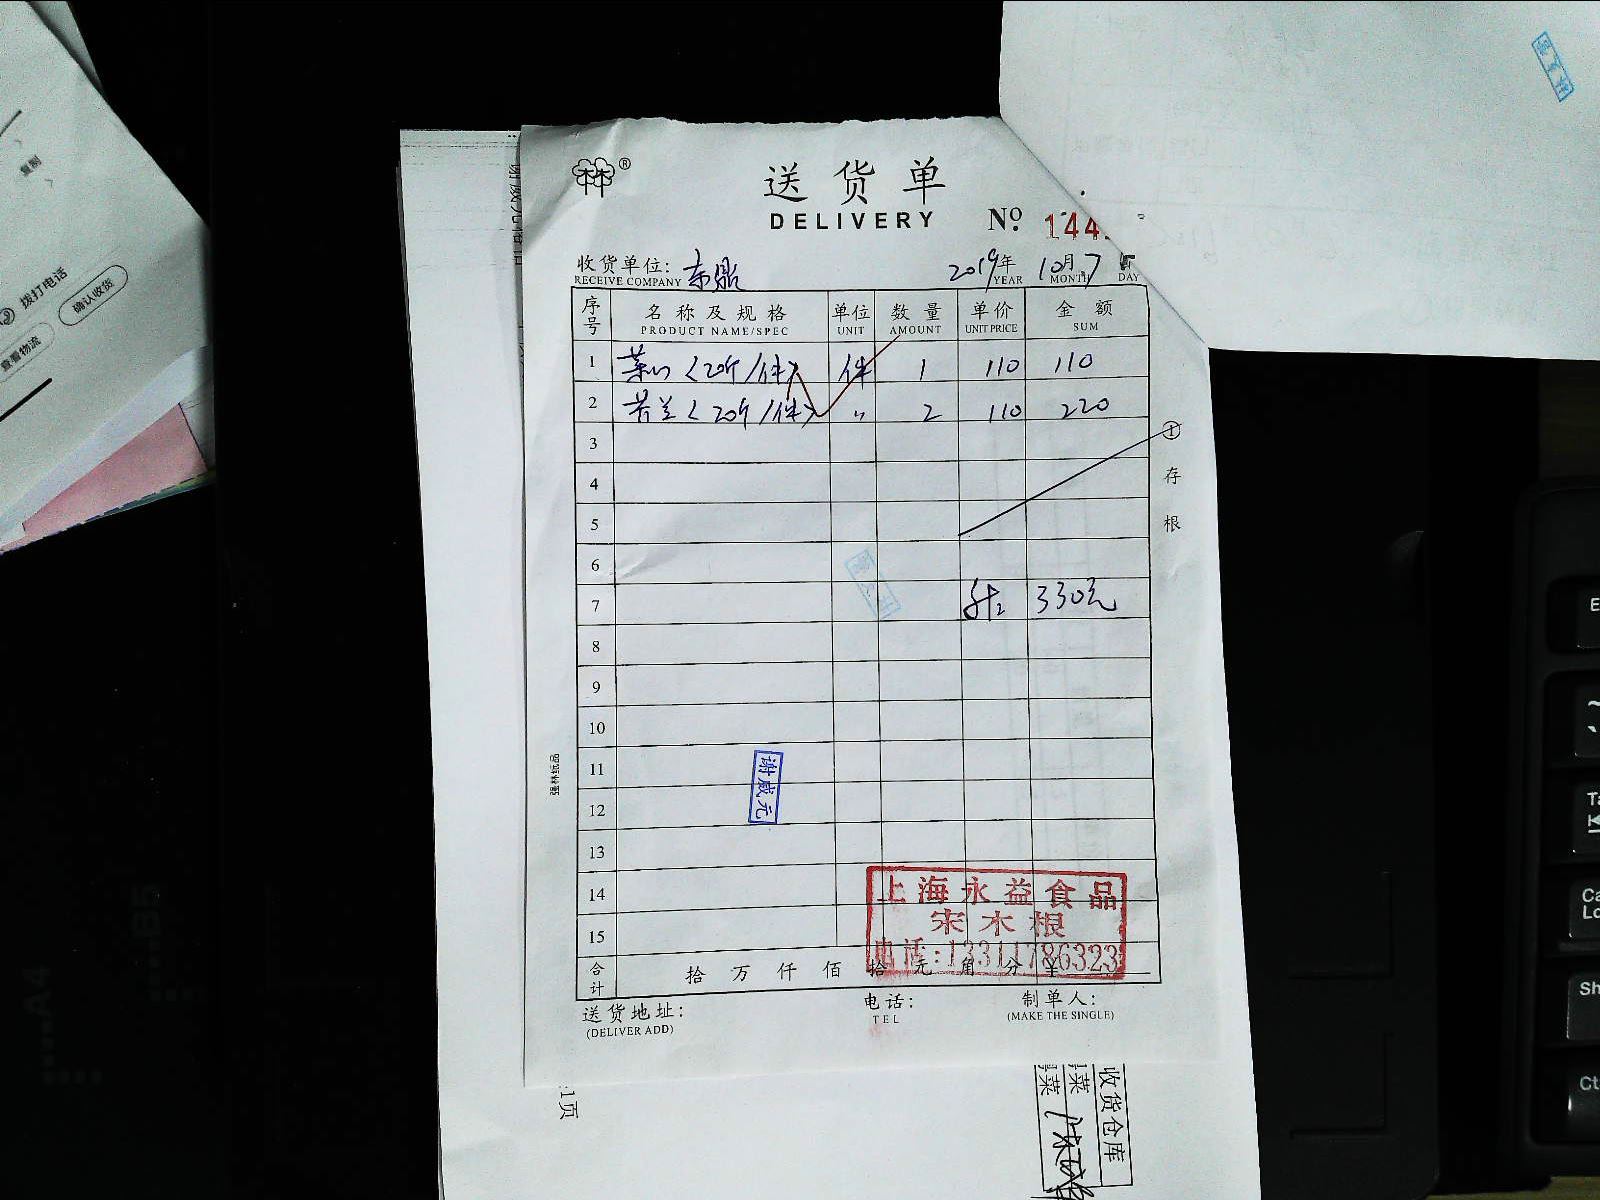 送货单
DELIVERY
No. 144
收货单位:
RECEIVE COMPANY
2019年 10月 7
YEAR MONTH DAY
序号 名称及规格 单位 数量 单价 金额
PRODUCT NAME/SPEC UNIT AMOUNT UNIT PRICE SUM
1 菜心(20斤/件) 件 1 110 110
2 芥兰(20斤/件) 〃 2 110 220
3
4
5
6
7 计: 330元
8
9
10
11
12
13
14
15
合计 拾 万 仟 佰 拾 元 角 分 ¥
①存根
强林纸品
谢威元
上海永益食品
宋木根
电话:13311786323
送货地址:
(DELIVER ADD)
电话:
TEL
制单人:
(MAKE THE SINGLE)
复制
拨打电话
确认收货
查看物流
1页
收货仓库
A4
B5